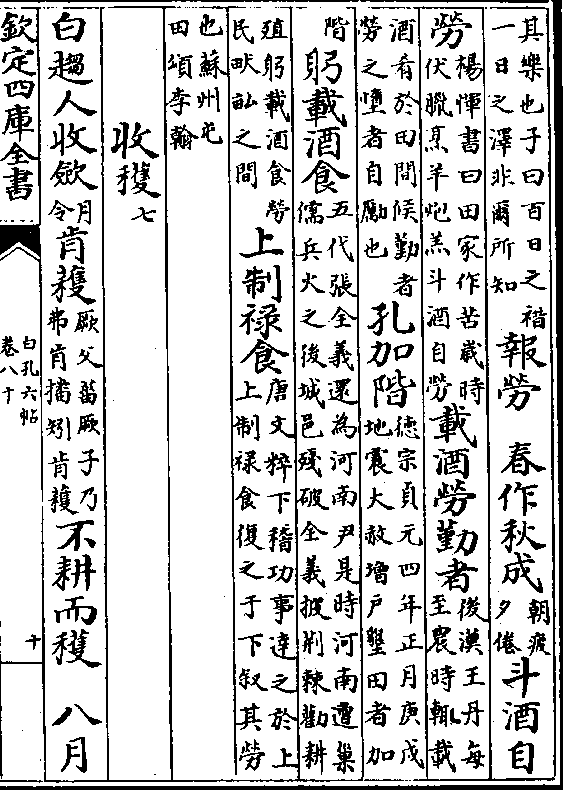 其樂也子曰百日之䄍一日之澤非爾所知報勞　春作秋成朝疲夕倦斗酒自
勞楊惲書曰田家作苦歲時伏臘烹羊炮羔斗酒自勞載酒勞勤者後漢王丹每至農時輒載
酒肴於田間候勤者勞之墮者自勵也孔加階德宗貞元四年正月庚戌地震大赦增戶墾田者加
階躬載酒食五代張全義還為河南尹是時河南遭巢儒兵火之後城邑殘破全義披荆棘勸耕
殖躬載酒食勞民畎畝之間上制祿食唐文粹下稽功事達之於上上制祿食復之于下叙其勞
也蘇州屯田頌李翰
收穫七
白趨人收斂月令肯穫厥父菑厥子乃弗肯播矧肯穫不耕而穫　八月
欽定四庫全書
白孔六帖
卷八十
十